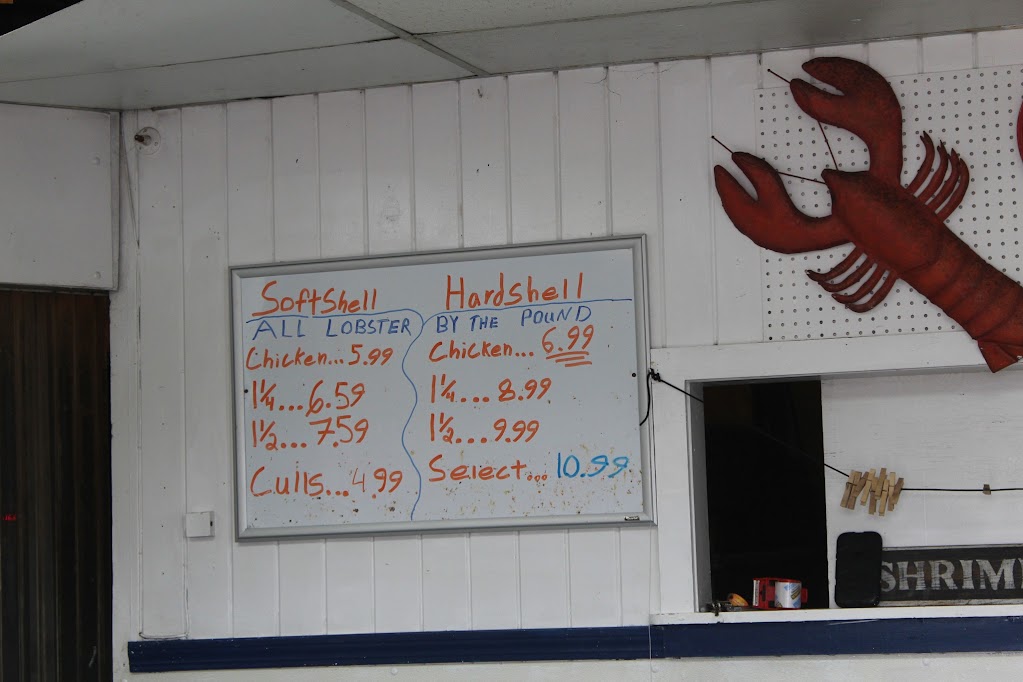 SoftShell
ALL LOBSTER
Chicken... 5.99
1 1/4... 6.59
1 1/2... 7.59
Culls... 4.99
HardShell
BY THE POUND
Chicken... 6.99
1 1/4... 8.99
1 1/2... 9.99
Select... 10.99
SHRIM